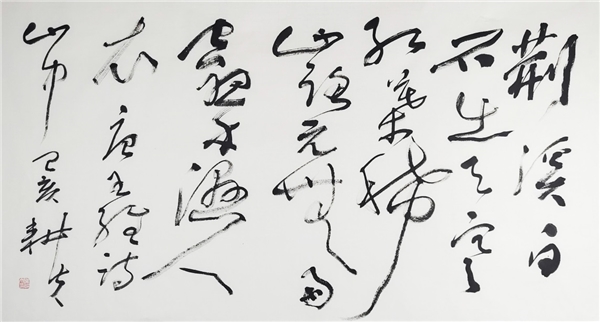 荆溪白
石出天寒
红葉稀
山路元無雨
空翠濕人
衣 唐王維詩
山中 己亥 耕